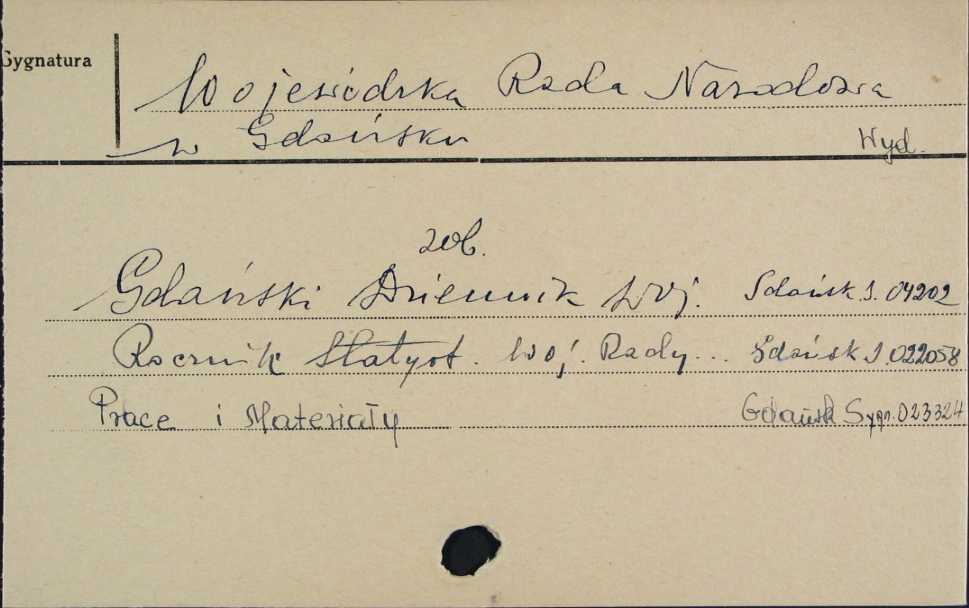 Sygnatura
Wojewódzka Rada Narodowa
w Gdańsku
Wyd.
zob.
Gdański Dziennik Woj. Gdańsk S. 04202
Rocznik Statyst. Woj. Rady... Gdańsk S. 022058
Prace i Materiały Gdańsk Sygn. 023324